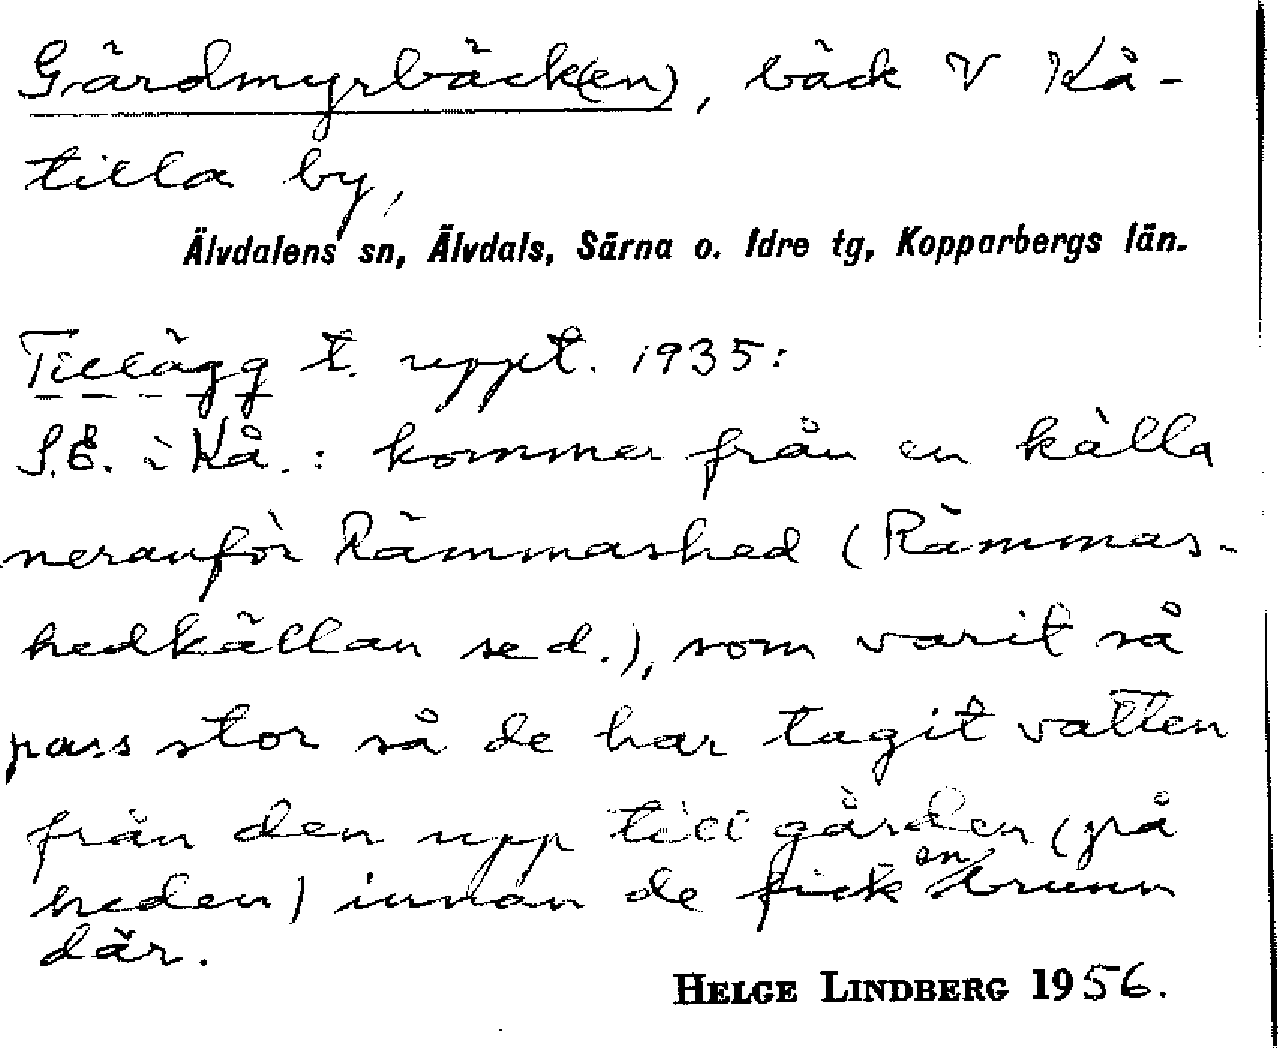 Gärdmyrbäck(en), bäck V Kå-
tilla by,
Älvdalens sn, Älvdals, Särna o. Idre tg, Kopparbergs län.
Tillägg t. uppt. 1935:
S.E. i Kå.: kommer från en källa
neranför Rämmashed (Rämmas-
hedkällan se d.), som varit så
pass stor så de har tagit vatten
från den upp till gården (på
heden) innan de fick en brunn
där.
HELGE LINDBERG 1956.